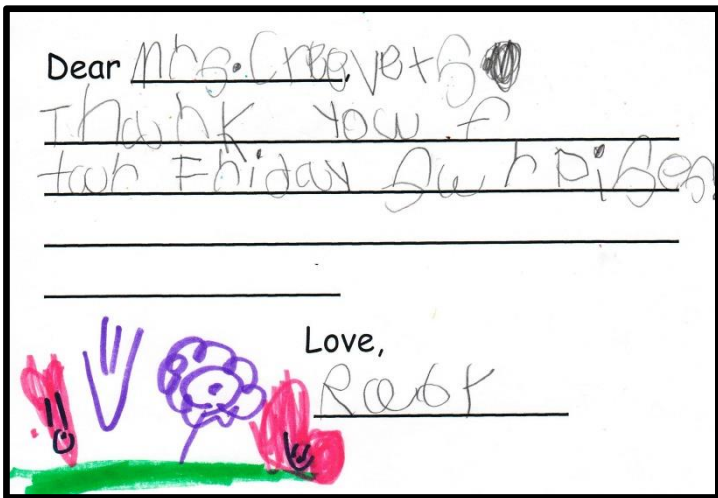 Dear Mrs. Creevets
Thank you f
four Friday Surpises
Love,